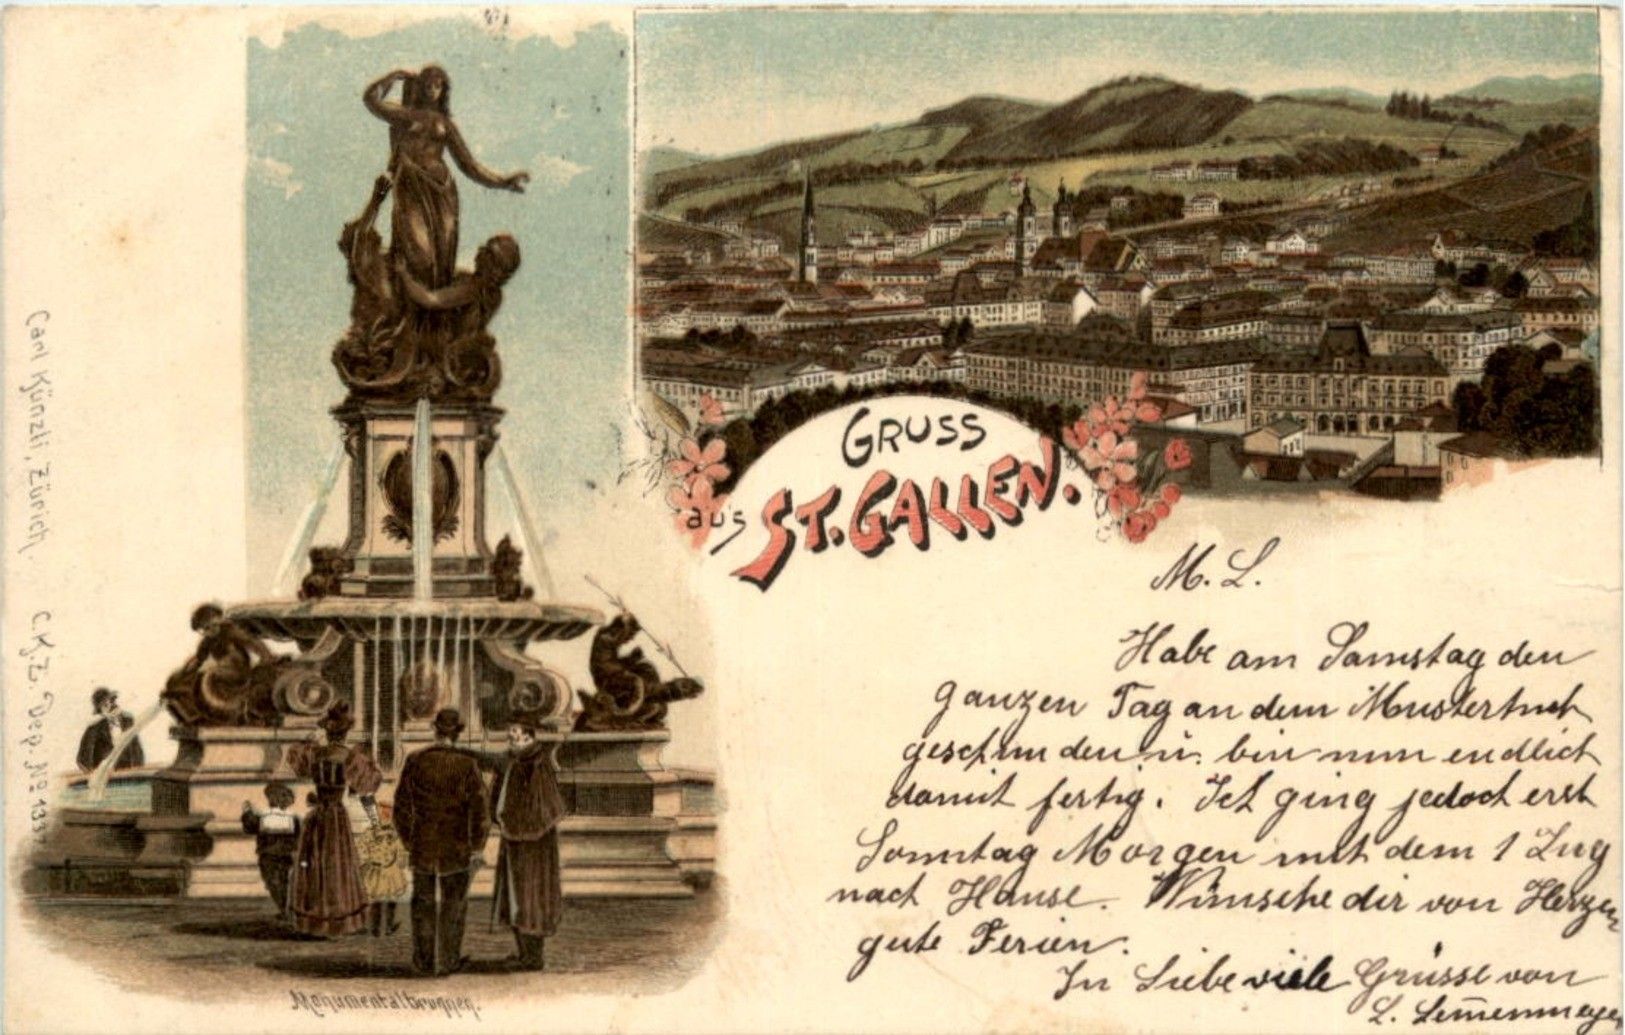 Carl Künzli, Zürich. C.K.Z. Dep. No 133
Monumentalbrunnen.
GRUSS
aus ST. GALLEN.
M. L.
Habe am Samstag den
ganzen Tag an dem Mustertuch
geschunden u. bin nun endlich
damit fertig. Ich ging jedoch erst
Sonntag Morgen mit dem 1 Zug
nach Hause. Wünsche dir von Herzen
gute Ferien.
In Liebe viele Grüsse von
L.